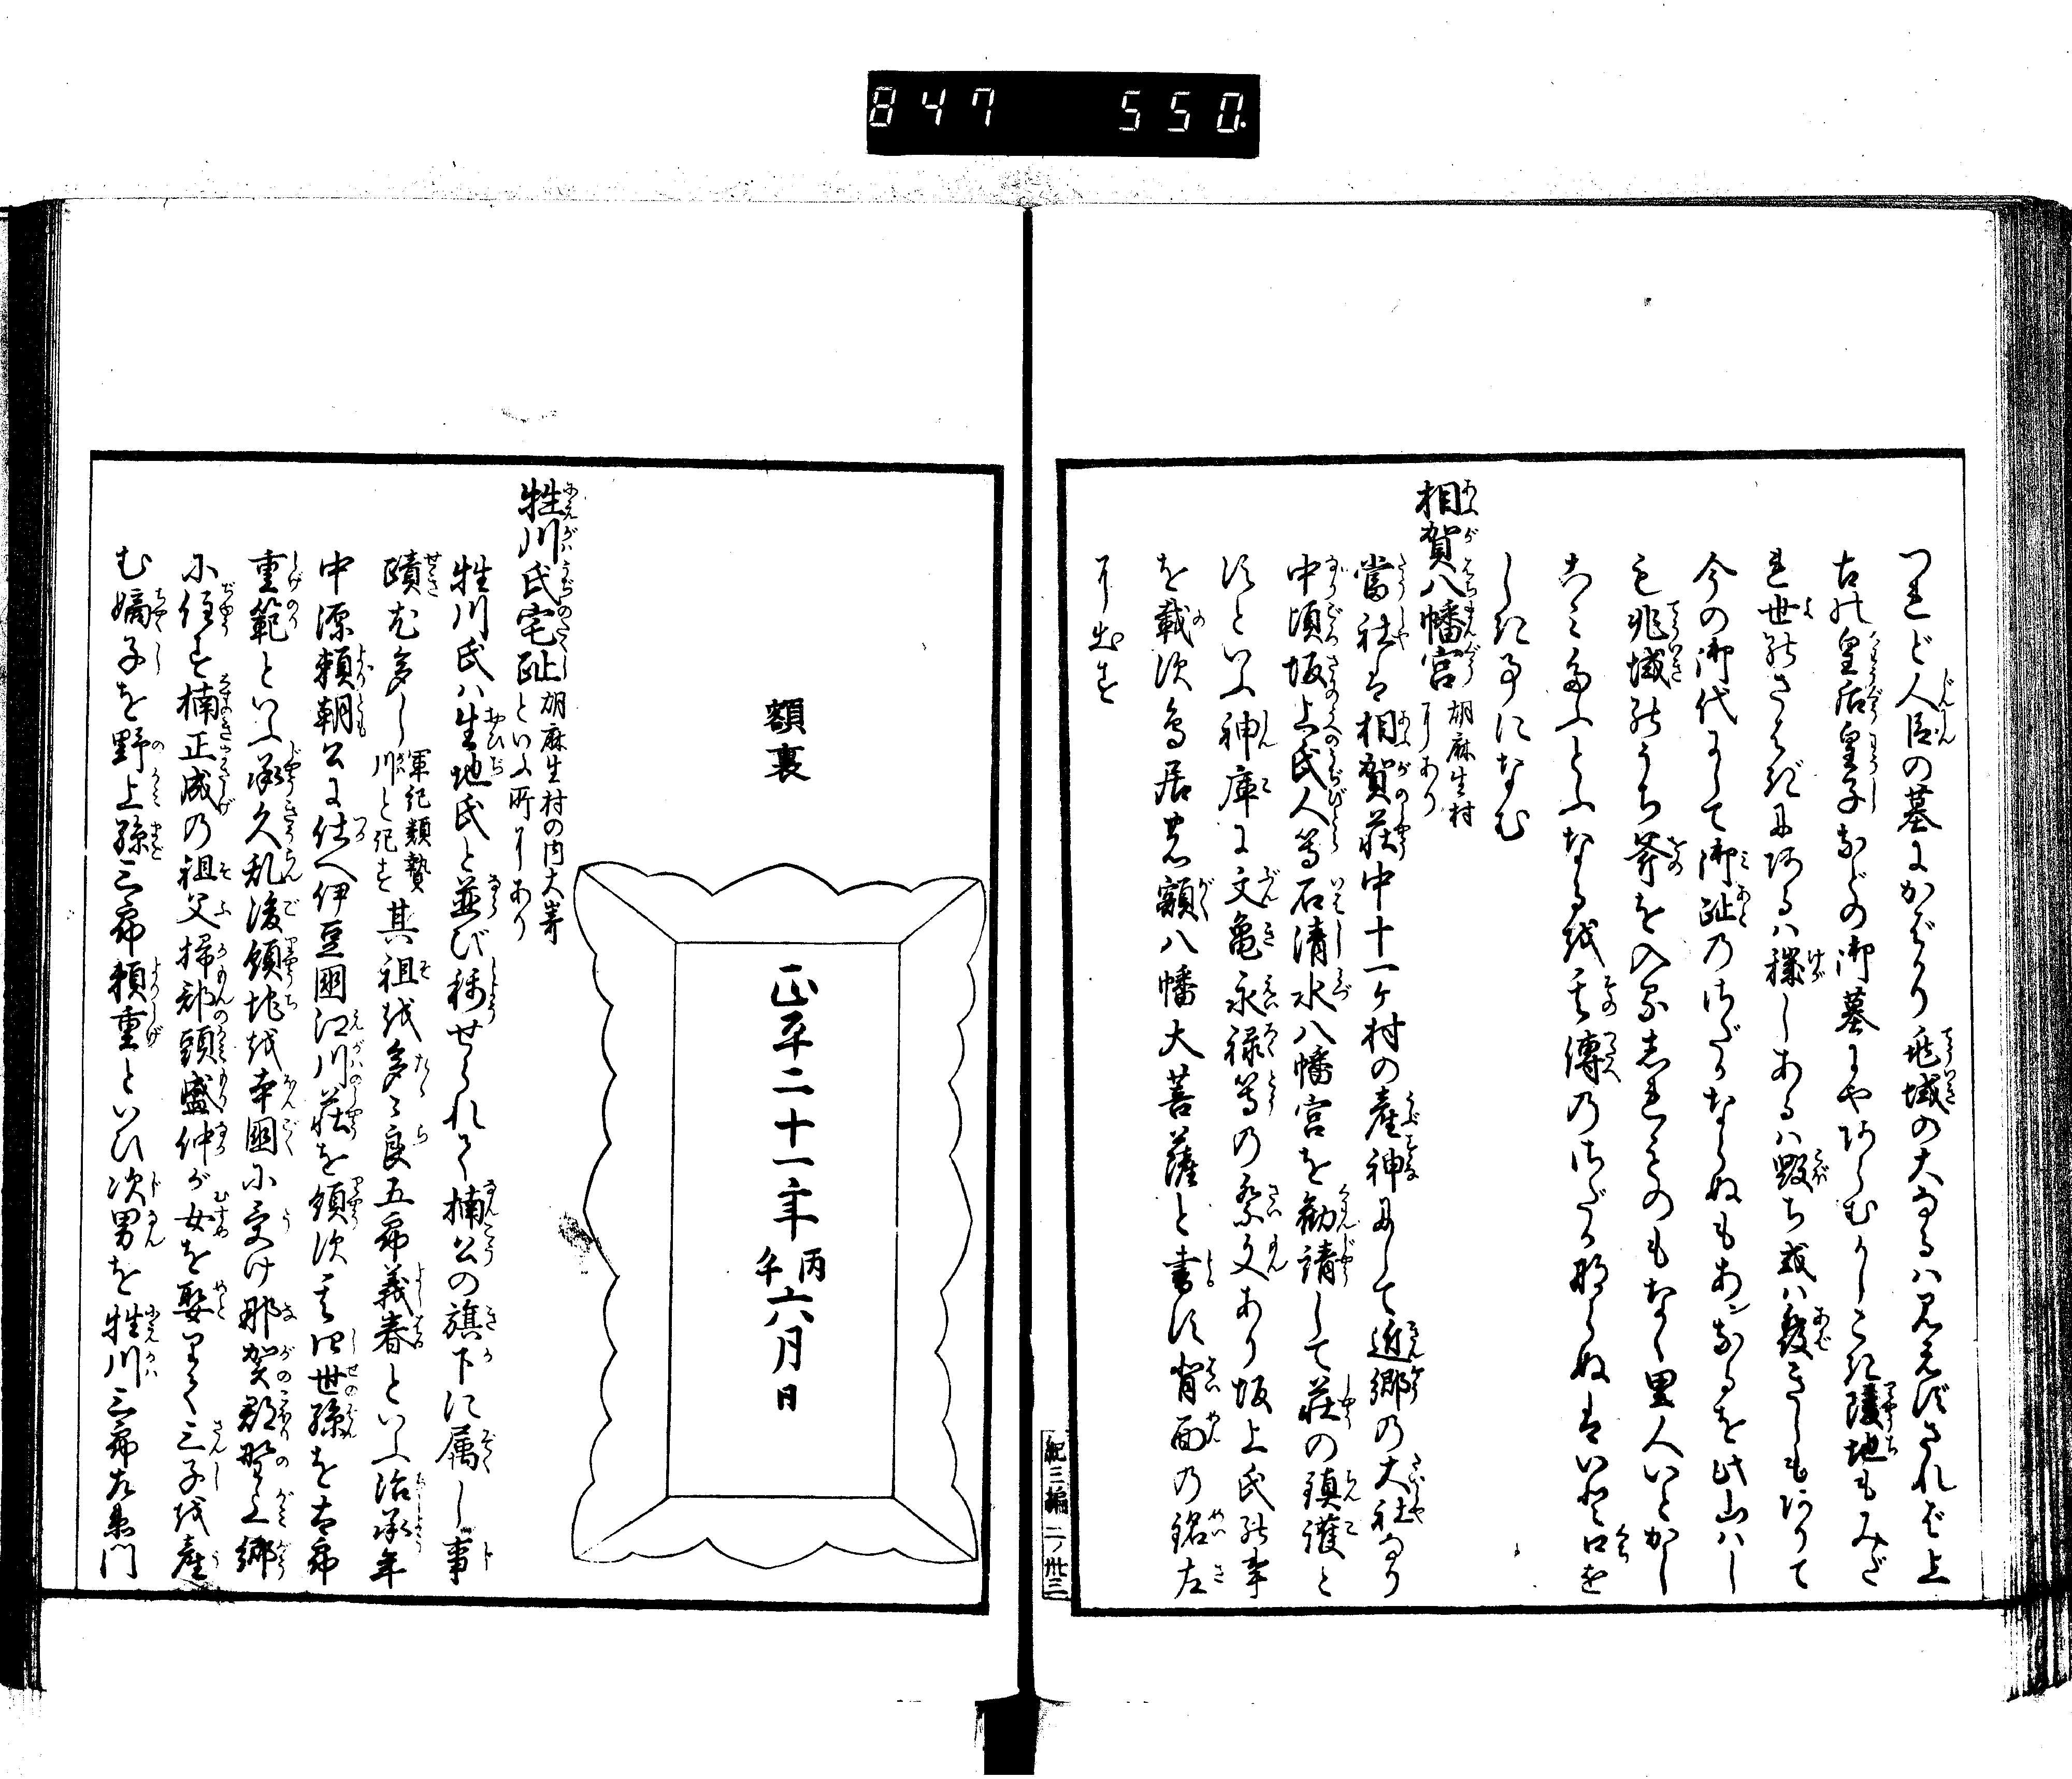 847 550
つれど人臣の墓にかばかり兆域の大なるハ見えずされば上
古の皇居皇子などの御墓にやあらむかしこき陵地もみだ
れ世のさはぎにあるハ穢しあるハ毀ち或ハ發きしもありて
今の御代にして御趾のさだかならぬもあンなるを此山ハし
も兆域のうち斧を入るゝものもなく里人いとかし
こみたふとふなる或其傳のさだか那らぬはいと口を
しきわざになむ
相賀八幡宮 胡麻生村
にあり
當社は相賀荘中十一ヶ村の産神にして近郷の大社なり
中頃坂上氏人等石清水八幡宮を勧請して荘の鎮護と
すといふ神庫に文亀永禄等の祭文あり坂上氏の事
を載す鳥居の額八幡大菩薩と書す背面の銘左
に出す
紀三編 二ノ卅三
額裏
正平二十一年丙午六月日
牲川氏宅趾 胡麻生村の内大嵜
といふ所にあり
牲川氏ハ生地氏と並び称せられて楠公の旗下に属し事
蹟尤多し 軍記類贄
川と記す 其祖を多々良五郎義春といふ治承年
中源頼朝公に仕へ伊豆國江川荘を領す其四世孫を太郎
重範といふ承久乱後領地を本國に受け那賀郡野上郷
に住す楠正成の祖父掃部頭盛仲が女を娶りて三子を産
む嫡子を野上孫三郎頼重といひ次男を牲川三郎左衛門